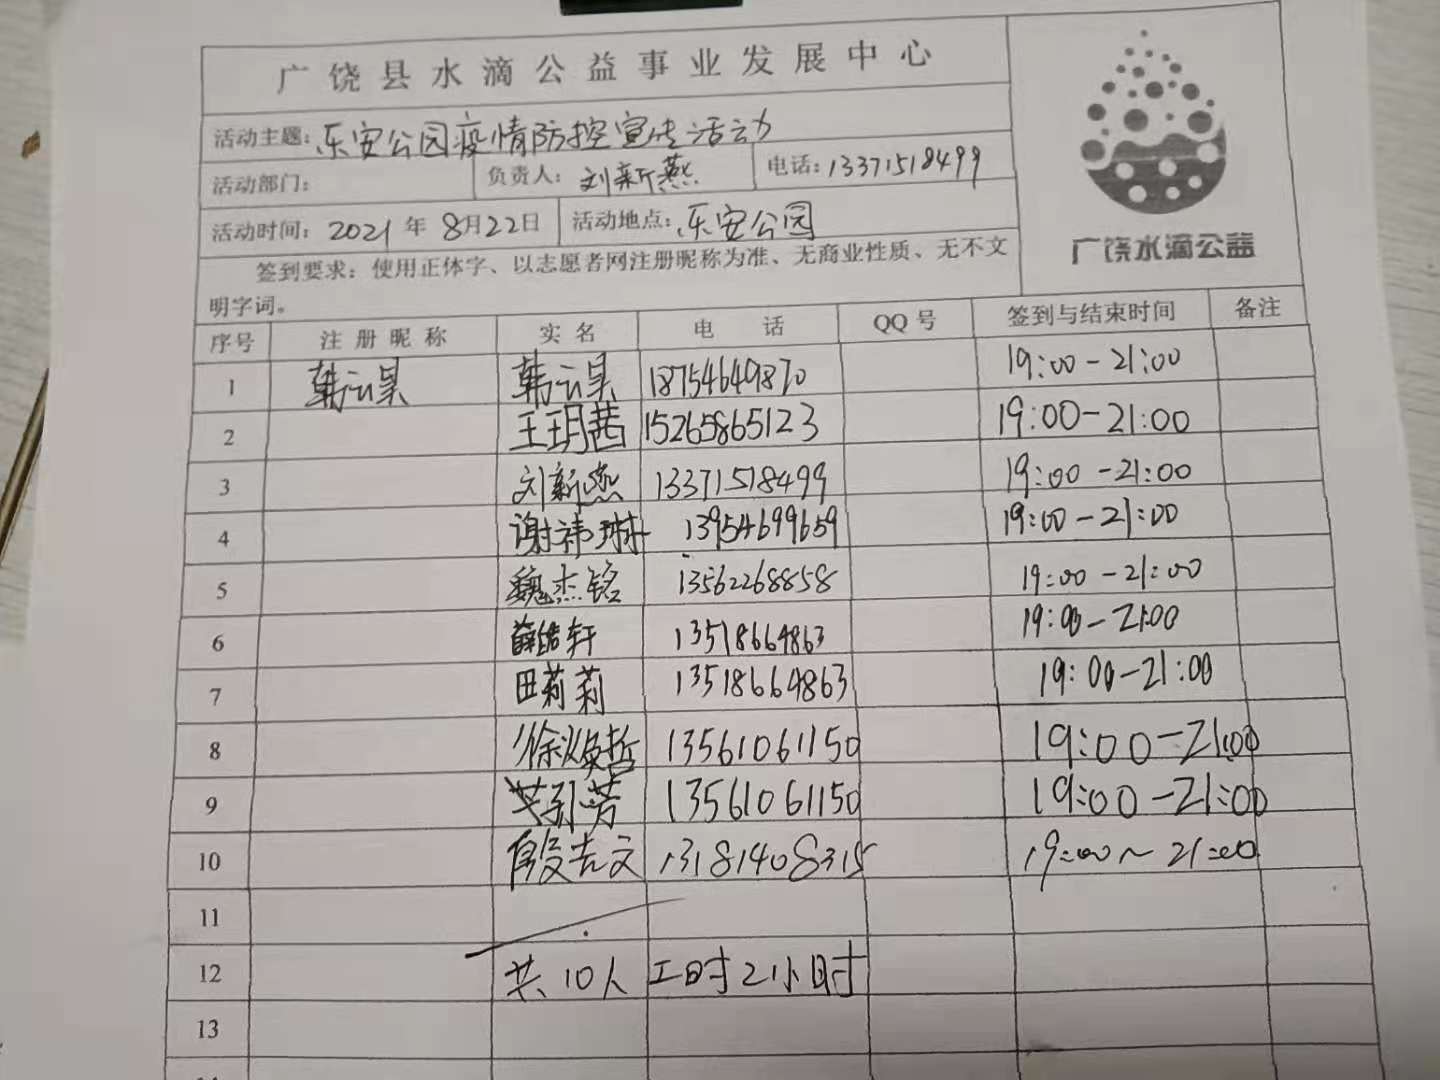 广饶县水滴公益事业发展中心
活动主题：乐安公园疫情防控宣传活动
活动部门： 负责人：刘新燕 电话：13371518499
活动时间：2021年8月22日 活动地点：乐安公园
广饶水滴公益
签到要求：使用正体字、以志愿者网注册昵称为准、无商业性质、无不文
明字词。
序号 注册昵称 实名 电话 QQ号 签到与结束时间 备注
1 韩云昊 韩云昊 18754649870 19:00-21:00
2 王玥茜 15265865123 19:00-21:00
3 刘新燕 13371518499 19:00-21:00
4 谢祎琳 13954699659 19:00-21:00
5 魏杰铭 13562268858 19:00-21:00
6 薛皓轩 13518664863 19:00-21:00
7 田莉莉 13518664863 19:00-21:00
8 徐焕哲 13561061150 19:00-21:00
9 芳 13561061150 19:00-21:00
10 段吉文 13181408315 19:00~21:00
11
12 共10人 工时2小时
13